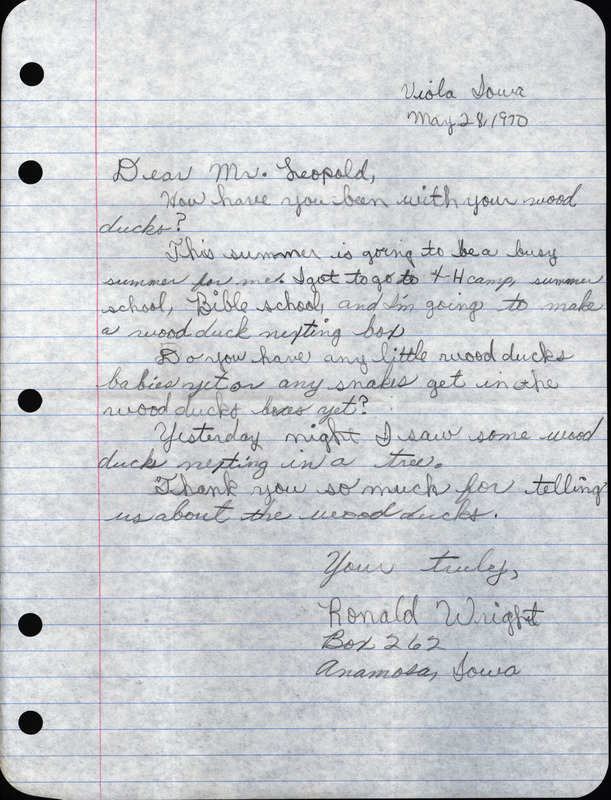 Viola Iowa
May 28, 1970
Dear Mr. Leopold,
How have you been with your wood
ducks?
This summer is going to be a busy
summer for me. I got to go to 4-H camp, summer
school, Bible school, and I'm going to make
a wood duck nexting box
Do you have any little wood ducks
babies yet or any snakes get in the
wood ducks boxes yet?
Yesterday night I saw some wood
ducks nexting in a tree.
Thank you so much for telling
us about the wood ducks.
Your truley,
Ronald Wright
Box 262
Anamosa, Iowa